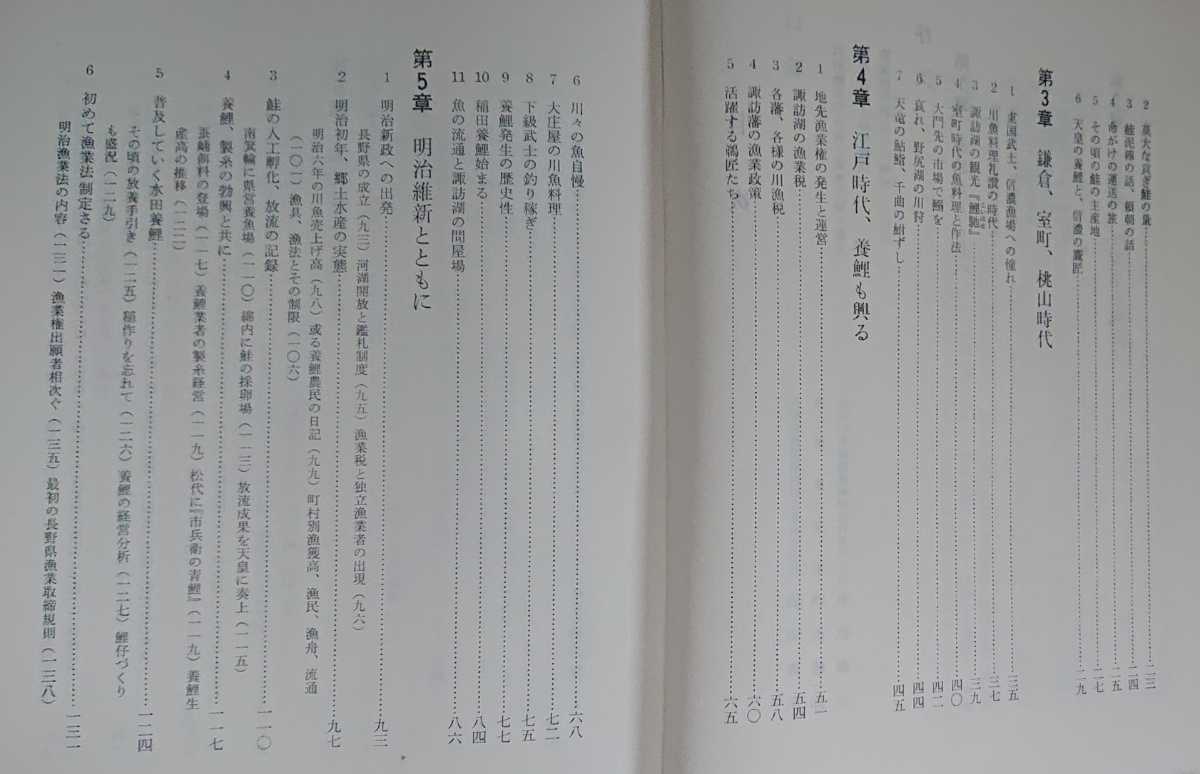 2 莫大な貢ぎ鮭の量……二三
3 鮭泥棒の話、頼朝の話……二四
4 命がけの運送の旅……二五
5 その頃の鮭の主産地……二七
6 天皇の養鯉と、信濃の鷹匠……二九
第3章 鎌倉、室町、桃山時代
1 東国武士、信濃漁場への憧れ……三五
2 川魚料理礼讃の時代……三七
3 諏訪湖の観光『鯉馳』……三九
4 室町時代の魚料理と作法……四〇
5 大門先の市場で鰯を……四二
6 哀れ、野尻湖の川狩……四四
7 天竜の鮎鮨、千曲の鮒ずし……四五
第4章 江戸時代、養鯉も興る
1 地先漁業権の発生と運営……五一
2 諏訪湖の漁業税……五四
3 各藩、各様の川漁税……五八
4 諏訪藩の漁業政策……六〇
5 活躍する鵜匠たち……六五
6 川々の魚自慢……六八
7 大庄屋の川魚料理……七二
8 下級武士の釣り稼ぎ……七五
9 養鯉発生の歴史性……七七
10 稲田養鯉始まる……八四
11 魚の流通と諏訪湖の問屋場……八六
第5章 明治維新とともに
1 明治新政への出発……九三
長野県の成立(九三) 河湖開放と鑑札制度(九五) 漁業税と独立漁業者の出現(九六)
2 明治初年、郷土水産の実態……九七
明治六年の川魚売上げ高(九八) 或る養鯉農民の日記(九九) 町村別漁獲高、漁民、漁舟、流通
(一〇一) 漁具、漁法とその制限(一〇六)
3 鮭の人工孵化、放流の記録……一一〇
南箕輪に県営養魚場(一一〇) 綿内に鮭の採卵場(一一三) 放流成果を天皇に奏上(一一五)
4 養鯉、製糸の勃興と共に……一一七
蚕蛹飼料の登場(一一七) 養鯉業者の製糸経営(一一九) 松代に『市兵衛の青鯉』(一一九) 養鯉生
産高の推移(一二二)
5 普及していく水田養鯉……一二四
その頃の放養手引き(一二五) 稲作りを忘れて(一二六) 養鯉の経営分析(一二七) 鯉仔づくり
も盛況(一二九)
6 初めて漁業法制定さる……一三一
明治漁業法の内容(一三一) 漁業権出願者相次ぐ(一三五) 最初の長野県漁業取締規則(一三八)